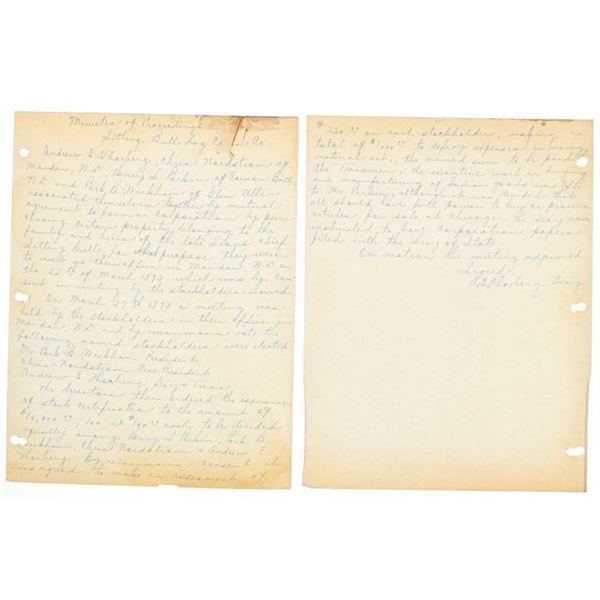 Minutes of Proceedings
Sitting Bull Log Cabin Co
Andrew E Thorberg, Chris Nordstrom of
Mandan, N.D. Henry S. Parkin of Cannon Ball
N.D. and Park B. Wickham of Glen Ullin
associated themselves together by mutual
agreement to form a corporation by pur
chasing certain property belonging to the
family and heirs of the late Sioux chief
Sitting Bull, for which purpose they were
to meet at their office in Mandan, N.D. on
the 25th of March 1893 which was by con
sent in writing by the stockholders waived
On March 27th 1893 a meeting was
held by the stockholders in their office in
Mandan, N.D. and by unanimous vote the
following named stockholders were elected
Mr Park B. Wickham, President
Chris Nordstrom Vice President
Andrew E Thorberg Secy & Treas
The directors then ordered the issuance
of stock certificates to the amount of
$10,000.00, 100 at $100.00 each to be divided
equally among Henry S. Parkin, Park B.
Wickham, Chris Nordstrom & Andrew E
Thorberg. By unanimous consent it
was agreed to make an assessment of
$250.00 on each stockholder, making a
total of $1000.00 to defray expenses in moving
material etc, the amount sum to be paid
the Treasurer. The executive work in buying
and manufacturing of Indian goods was
to Mr Parkin, altho it was decided that
all should have full power to buy or procure
articles for sale at Chicago. The Secy was
instructed to have corporation papers
filed with the Secy of State
On motion the meeting adjourned
Signed
A E Thorberg Secy